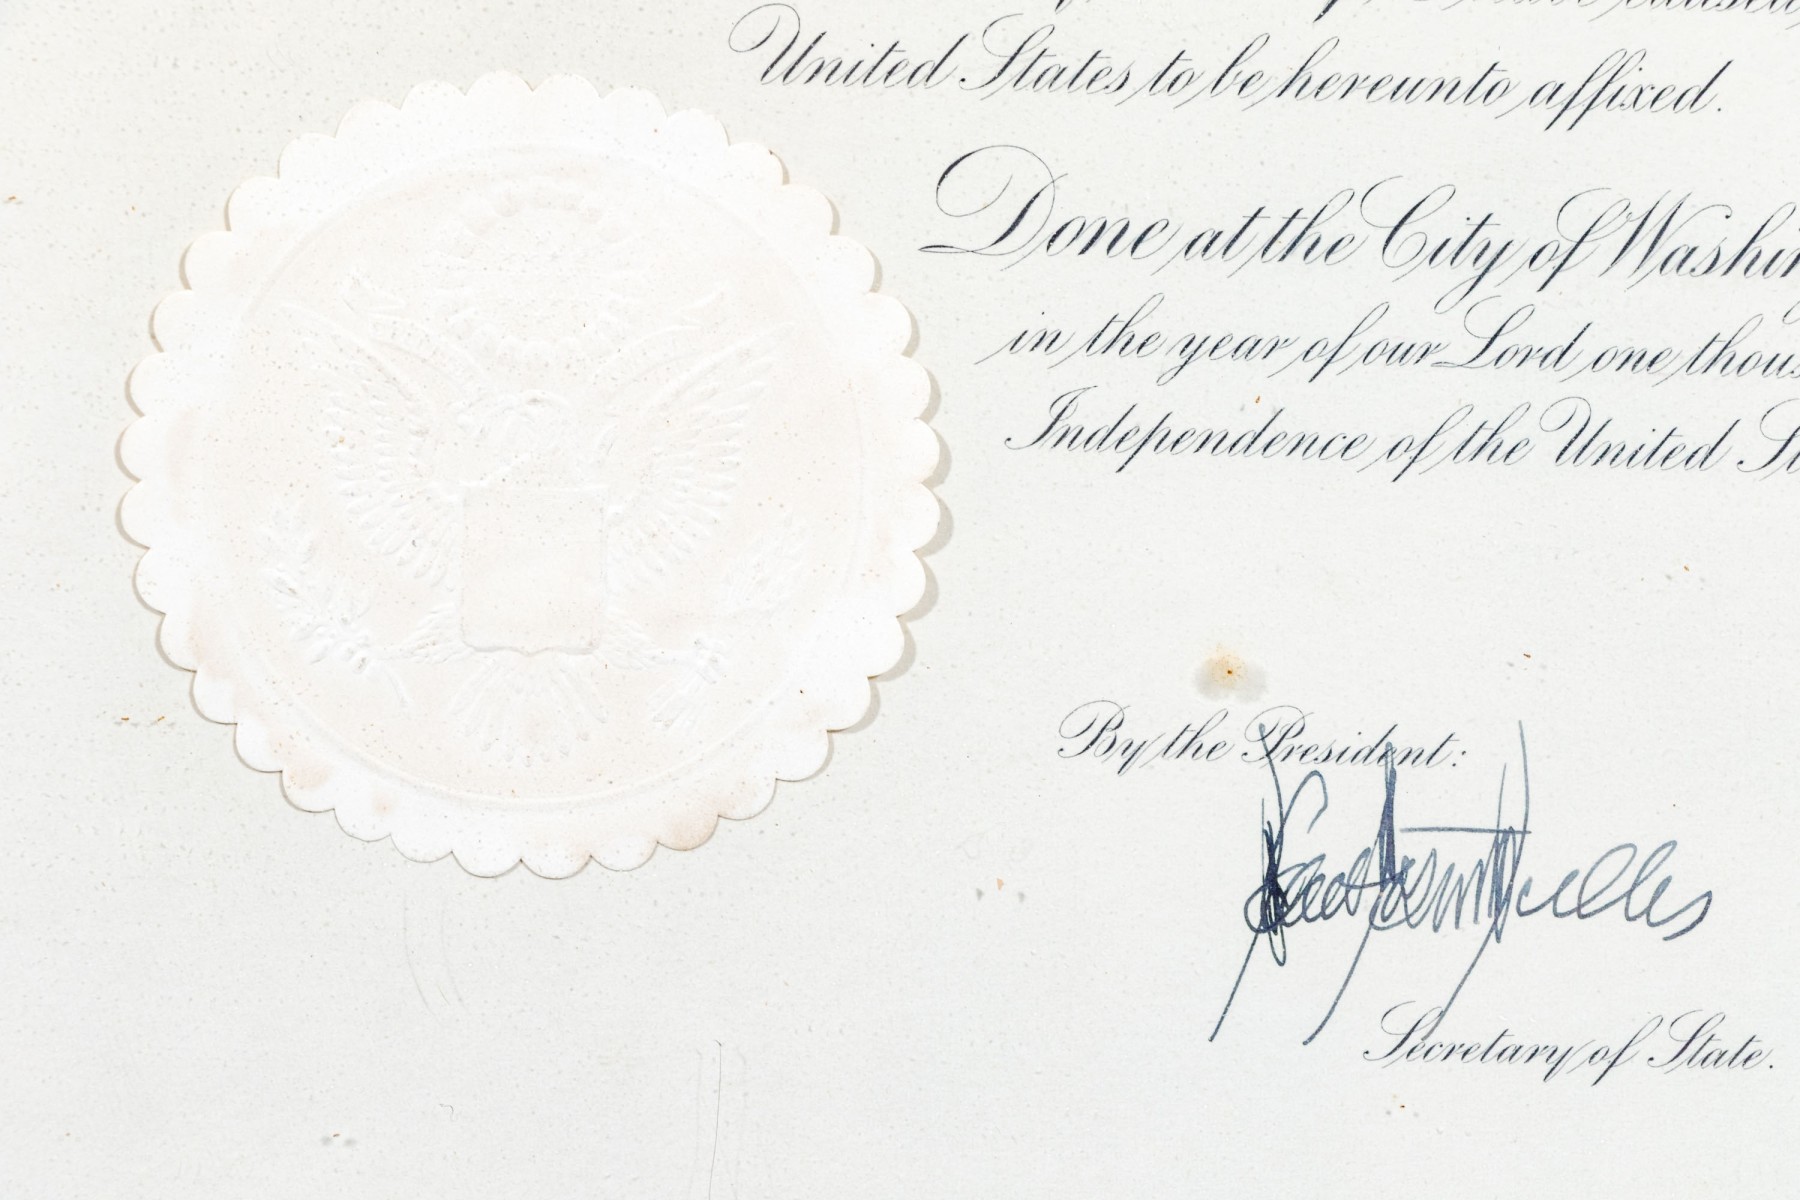 United States to be hereunto affixed.
Done at the City of Washin
in the year of our Lord one thous
Independence of the United St
By the President:
John Foster Dulles
Secretary of State.